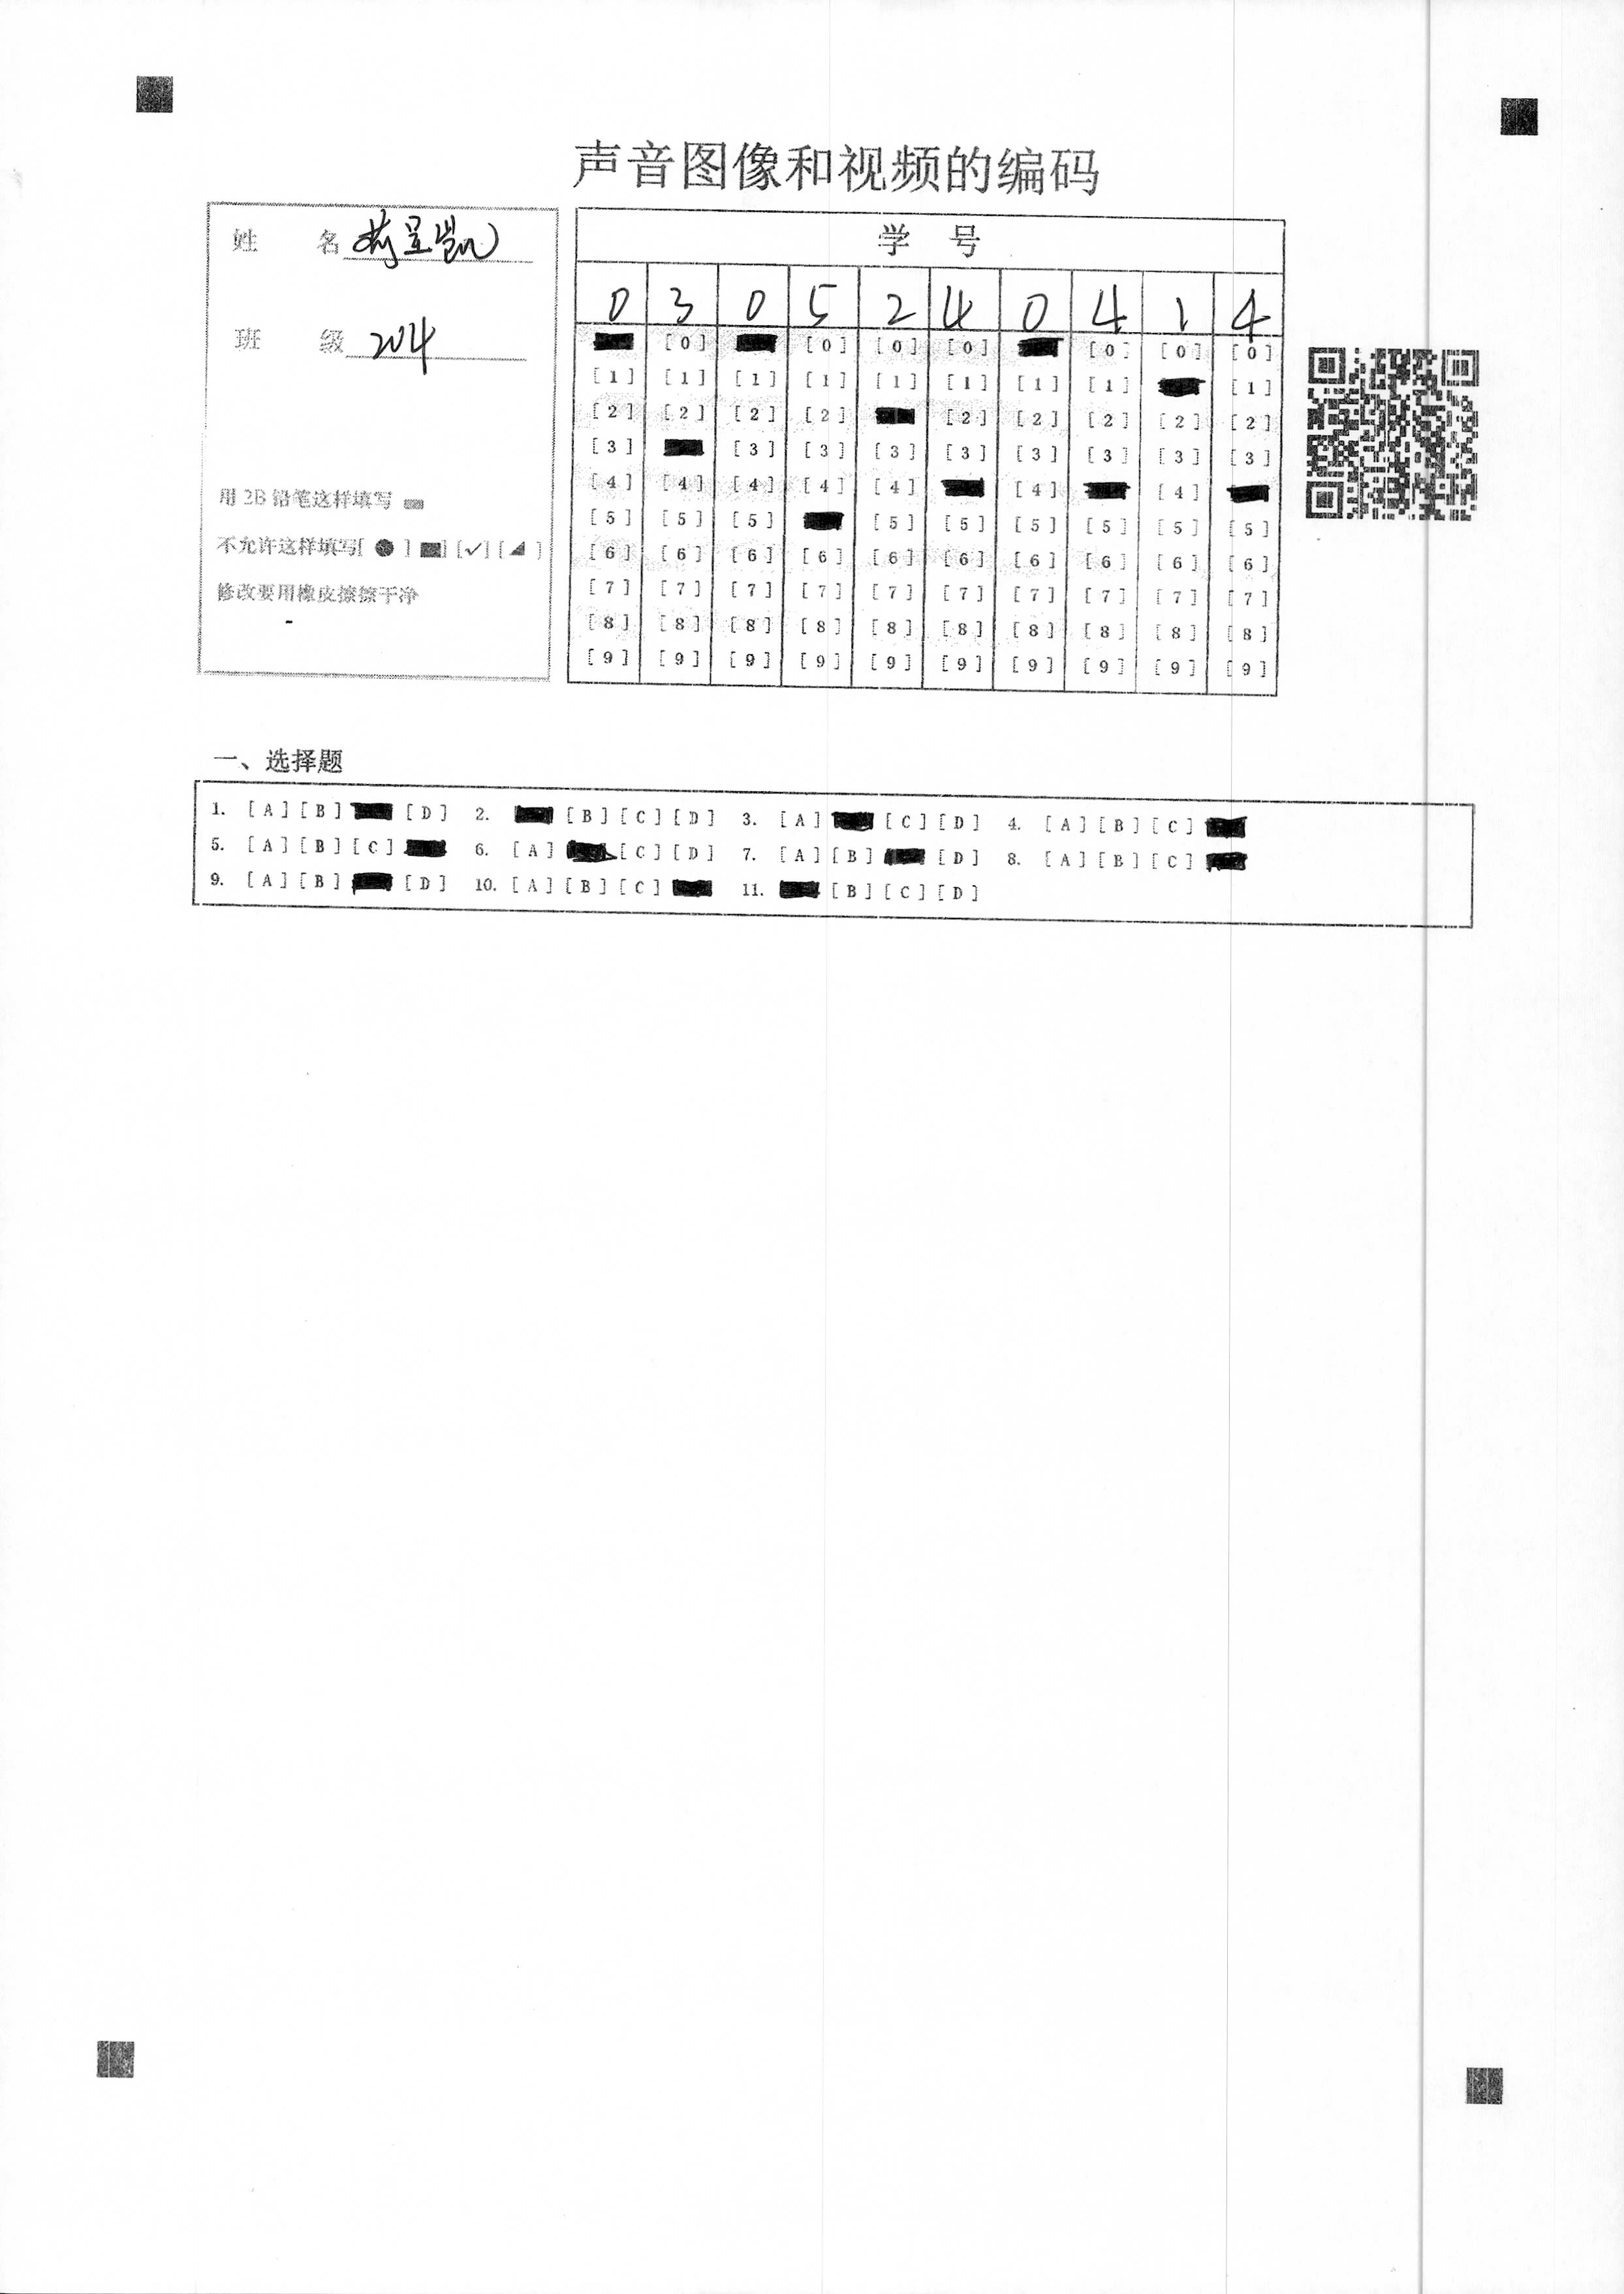 声音图像和视频的编码
姓 名
班 级 204
用 2B 铅笔这样填写
不允许这样填写[ ● ] ■] [✓] [ ◢ ]
修改要用橡皮擦擦干净
学 号
0 3 0 5 2 4 0 4 1 4
[0] [0] [0] [0] [0] [0] [0]
[1] [1] [1] [1] [1] [1] [1] [1] [1]
[2] [2] [2] [2] [2] [2] [2] [2] [2]
[3] [3] [3] [3] [3] [3] [3] [3] [3]
[4] [4] [4] [4] [4] [4] [4]
[5] [5] [5] [5] [5] [5] [5] [5] [5]
[6] [6] [6] [6] [6] [6] [6] [6] [6] [6]
[7] [7] [7] [7] [7] [7] [7] [7] [7] [7]
[8] [8] [8] [8] [8] [8] [8] [8] [8] [8]
[9] [9] [9] [9] [9] [9] [9] [9] [9] [9]
一、选择题
1. [A] [B] [D] 2. [B] [C] [D] 3. [A] [C] [D] 4. [A] [B] [C]
5. [A] [B] [C] 6. [A] [C] [D] 7. [A] [B] [D] 8. [A] [B] [C]
9. [A] [B] [D] 10. [A] [B] [C] 11. [B] [C] [D]